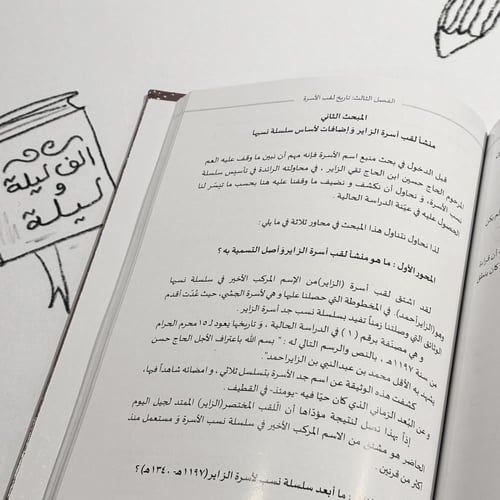 الف ليلة
و
ليلة
الفصل الثالث: تاريخ لقب الأسرة
المبحث الثاني
منشأ لقب أسرة الزاير و إضافات لأساس سلسلة نسبها
قبل الدخول في بحث منبع اسم الأسرة فإنه مهم أن نبين ما وقف عليه العم
المرحوم الحاج حسين ابن الحاج تقي الزاير ، في محاولته الرائدة في تأسيس سلسلة
نسب الأسرة، و نحاول أن نكشف و نضيف ما وقفنا عليه هنا بحسب ما تيسّر لنا
الحصول عليه في عيّنة الدراسة الحالية .
لذا نحاول نتناول هذا المبحث في محاور ثلاثة في ما يلي:
المحور الأول : ما هو منشأ لقب أسرة الزاير وأصل التسمية به؟
لقد اشتق لقب أسرة (الزاير)من الإسم المركب الأخير في سلسلة نسبها
وهو(الزايرأحمد). في المخطوطة التي حصلنا عليها و هي لأسرة الجشي، حيث عُدّت أقدم
الوثائق التي وصلتنا زمناً تفيد بسلسلة نسب جد أسرة الزاير.
و هي مصنّفة برقم (١) في الدراسة الحالية ، و تاريخها يعود لـ ١٥ محرم الحرام
من سنة ١١٩٧هـ ، بالنص والرسم التالي له : " بسم الله باعتراف الأجل الحاج حسن
يشهد به الأقل محمد بن عبدالنبي بن الزايراحمد".
كشفت هذه الوثيقة عن اسم جد الأسرة بتسلسل ثلاثي ، و امضائه شاهداً فيها،
و عن البُعد الزماني الذي كان حيّا فيه -يومئذ- في القطيف .
إذاً بهذا نصل لنتيجة مؤدّاها أن اللّقب المختصر(الزاير) الممتد لجيل اليوم
الحاضر هو مشتق من الاسم المركب الأخير في سلسلة نسب الأسرة و مستعمل منذ
أكثر من قرنين .
ما أبعد سلسلة نسب لأسرة الزاير(١١٩٧هـ- ١٣٤٠هـ)؟